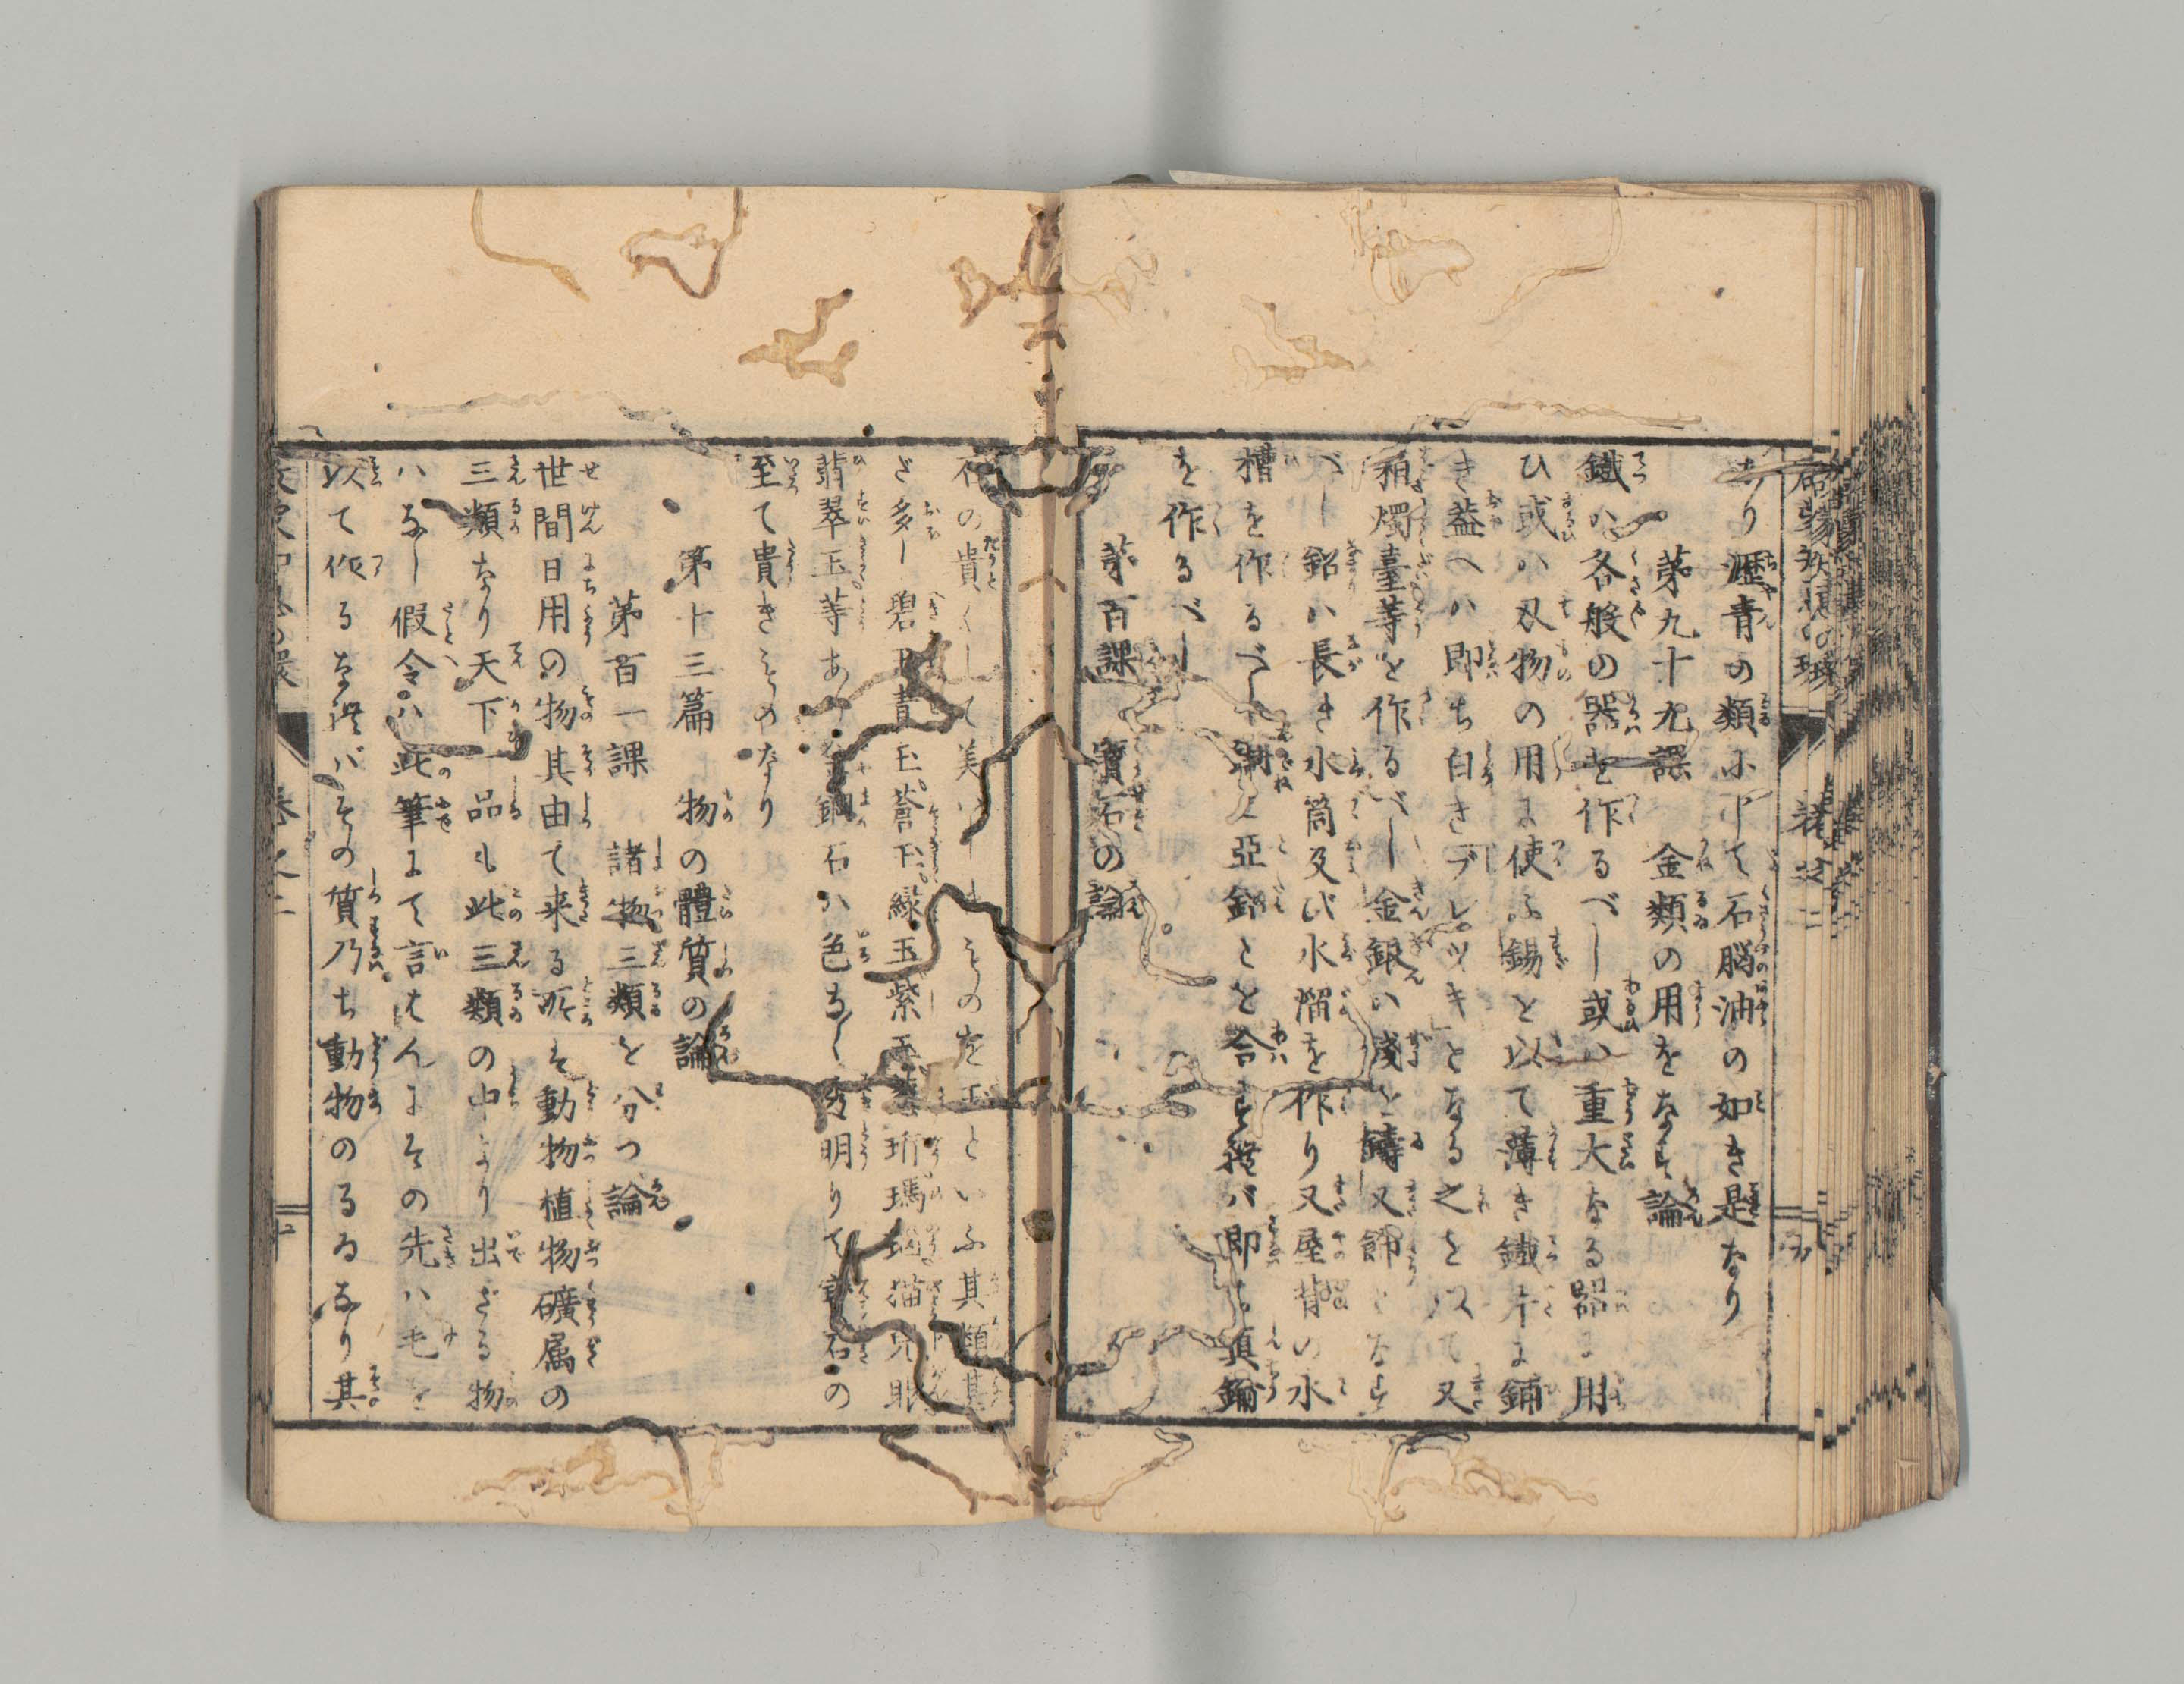 あり瀝青の類にして石脳油の如き是なり
第九十九課　金類の用をなす論
鐵ハ各般の器を作るべし或ハ重大なる器に用
ひ或ハ刄物の用に使ふ錫を以て薄き鐵片に鋪
き葢へハ即ち白きブレッキとなる之を以て又
箱燭臺等を作るべし金銀ハ錢を鑄又飾となす
べし鉛ハ長き水筒及び水溜を作り又屋背の水
槽を作るべし銅と亞鉛とを合すれバ即ち真鍮
を作るべし
第百課　寳石の論
石の貴くして美ハしきものを玉といふ其類甚
だ多し碧玉青玉蒼玉緑玉紫玉 珩瑪瑙猫児眼
翡翠玉等あり金剛石ハ色なく透明りて寳石の
至て貴きものなり
第十三篇　物の體質の論
第百一課　諸物三類を分つ論
世間日用の物其由て来る所を動物植物礦属の
三類なり天下一品も此三類の中より出ざる物
ハなし假令ハ此筆にて言はんにその先ハ毛を
以て作るなれバその質乃ち動物のるゐなり其